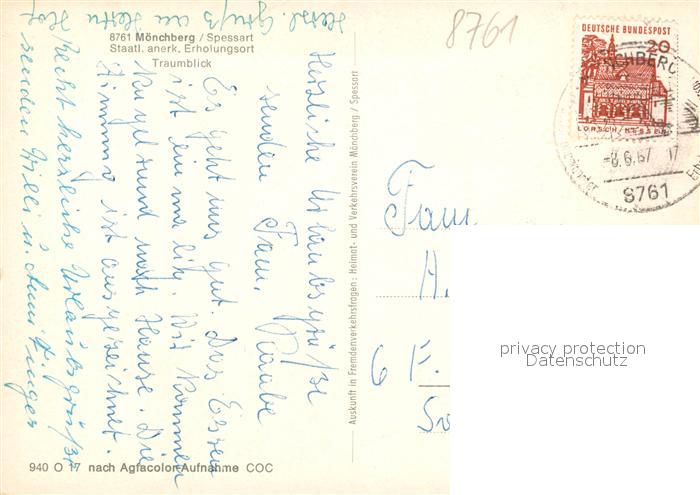 8761 Mönchberg / Spessart
Staatl. anerk. Erholungsort
Traumblick
8761
DEUTSCHE BUNDESPOST
20
LORSCH/HESSEN
MÖNCHBERG
-8.6.67 17
8761
Herzliche Urlaubsgrüße
senden Fam. Raabe
Es geht uns gut. Das Essen
ist ein malig. Wir kommen
Kugelrund nach Hause. Die
Stimmung ist ausgezeichnet.
Recht herzliche Urlaubsgrüße
senden Willi u. Anni
Herzl. Gruß an Herrn
Auskunft in Fremdenverkehrsfragen: Heimat- und Verkehrsverein Mönchberg / Spessart
Fam
A.
6 F.
privacy protection
Datenschutz
940 O 17 nach Agfacolor-Aufnahme COC